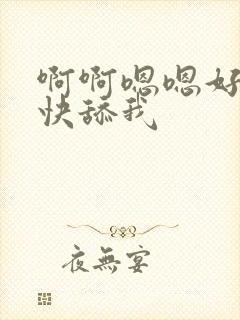 啊啊嗯嗯好
快舔我
夜無宴